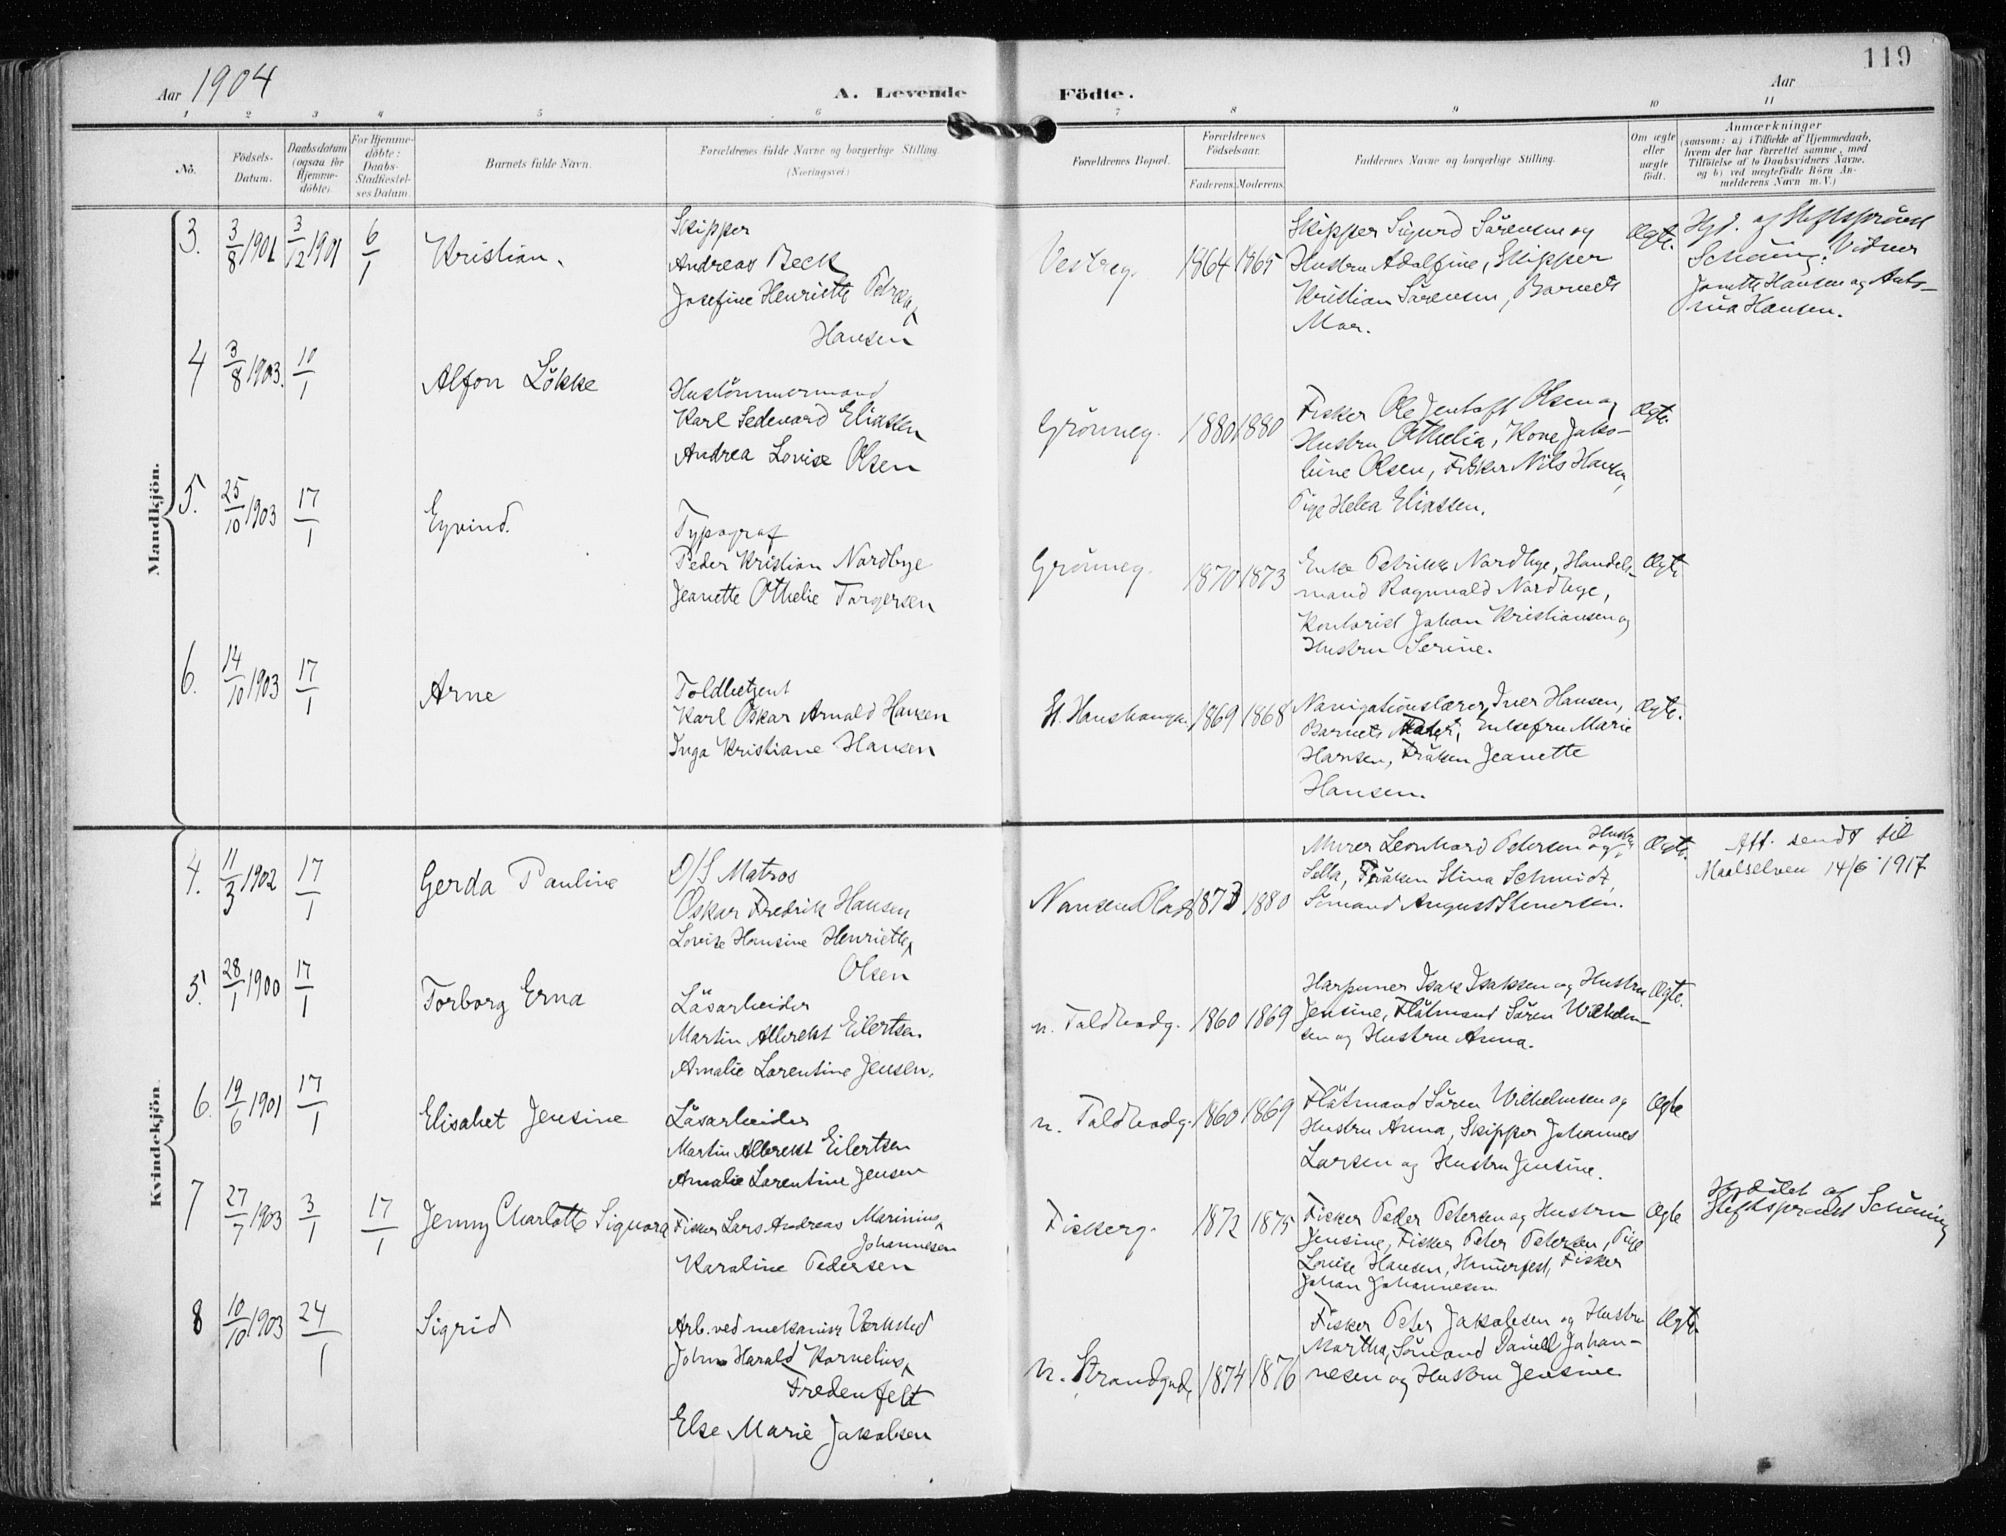 119
Aar 1904
A. Levende Födte.
Aar
1 2 3 4 5 6 7 8 9 10 11
No.
Födsels-Datum.
Daabsdatum (ogsaa for Hjemmedöbte).
For Hjemmedöbte: Daabs-Stadfæstelses Datum.
Barnets fulde Navn.
Forældrenes fulde Navne og borgerlige Stilling. (Næringsvei)
Forældrenes Bopæl.
Forældrenes Födselsaar.
Faderens. Moderens.
Faddernes Navne og borgerlige Stilling.
Om ægte eller uægte födt.
Anmærkninger
(saasom: a) i Tilfælde af Hjemmedaab, hvem der har forrettet samme, med Tilföielse af to Daabsvidners Navne, og b) ved uægtefödte Börn Anmelderens Navn m. V.)
Mandkjön.
3. 3/8 1901 3/12 1901 6/1 Kristian.
Skipper
Andreas Beck
Josefine Henriette Petrea
Hansen
Vestreg. 1864 1865
Skipper Sigurd Sörensen og
Hustru Adolfine, Skipper
Kristian Sörensen, Barnets
Mor.
Ægte.
Hjd. af Stiftsprövst
Schöning. Vidner
Janette Hansen og
Hansen.
4 3/8 1903. 10/1 Alfon Lökke
Hustömmermand
Karl Sedevard Eliassen
Andrea Lovise Olsen
Grönneg. 1880 1880
Fisker Ole Jentoft Olsen og
Hustru Othelia, Kone Jako-
bine Olsen, Fisker Nils Hansen,
Pige Helea Eliassen.
Ægte.
5. 25/10 1903 17/1 Eyvind.
Typograf
Peder Kristian Nordbye
Jeanette Othelie Torgersen
Grönneg. 1870 1873
Enke Petrikke Nordbye, Handels-
mand Ragnvald Nordbye,
Kontorist Johan Kristiansen og
Hustru Serine.
Ægte
6. 14/10 1903 17/1 Arne
Toldbetjent
Karl Oskar Arnald Hansen
Inga Kristiane Hansen
St. Hanshaugn. 1869 1868
Navigationslærer Iver Hansen,
Barnets Fader, Enkefru Marie
Hansen, Fröken Jeanette
Hansen.
Ægte.
Kvindekjön.
4. 11/3 1902 17/1 Gerda Pauline
D/S Matros
Oskar Fredrik Hansen
Lovise Hansine Henriette
Olsen
Nansens Plads 1873 1880
Murer Leonhard Petersen og Hustru
Sella, Fröken Stina Schmidt,
Sömand August Stenersen.
Ægte.
Att. sendt til
Maalselven 14/6 1917
5. 28/1 1900 17/1 Torborg Erna
Lösarbeider
Martin Albrekt Eilertsen.
Amalie Lorentine Jensen.
n. Toldbodg. 1860 1869
Harpuner Isak Isaksen og Hustru
Jensine, Flåtmand Sören Wilhelm-
sen og Hustru Anna.
Ægte.
6. 19/6 1901 17/1 Elisabet Jensine
Lösarbeider
Martin Albrekt Eilertsen
Amalie Lorentine Jensen
n. Toldbodg. 1860 1869
Flåtmand Sören Wilhelmsen og
Hustru Anna, Skipper Johannes
Larsen og Hustru Jensine.
Ægte
7 27/7 1903 3/1 17/1 Jenny Charlotte Signora
Fisker Lars Andreas Marinius
Johannesen
Karoline Pedersen
Fiskerg. 1872 1875
Fisker Peder Petersen og Hustru
Jensine, Fisker Peter Petersen, Pige
Lovise Hansen, Hammerfest, Fisker
Johan Johannesen.
Ægte
Hjdöbt af
Stiftsprovst Schöning
8 10/10 1903 24/1 Sigrid
Arb. ved mekanisk Værksted
John Harald Kornelius
Fredenfelt
Else Marie Jakobsen
n. Strandgade 1874 1876
Fisker Peter Jakobsen og Hustru
Martha, Sömand Daniel Johan-
nesen og Hustru Jensine
Ægte.